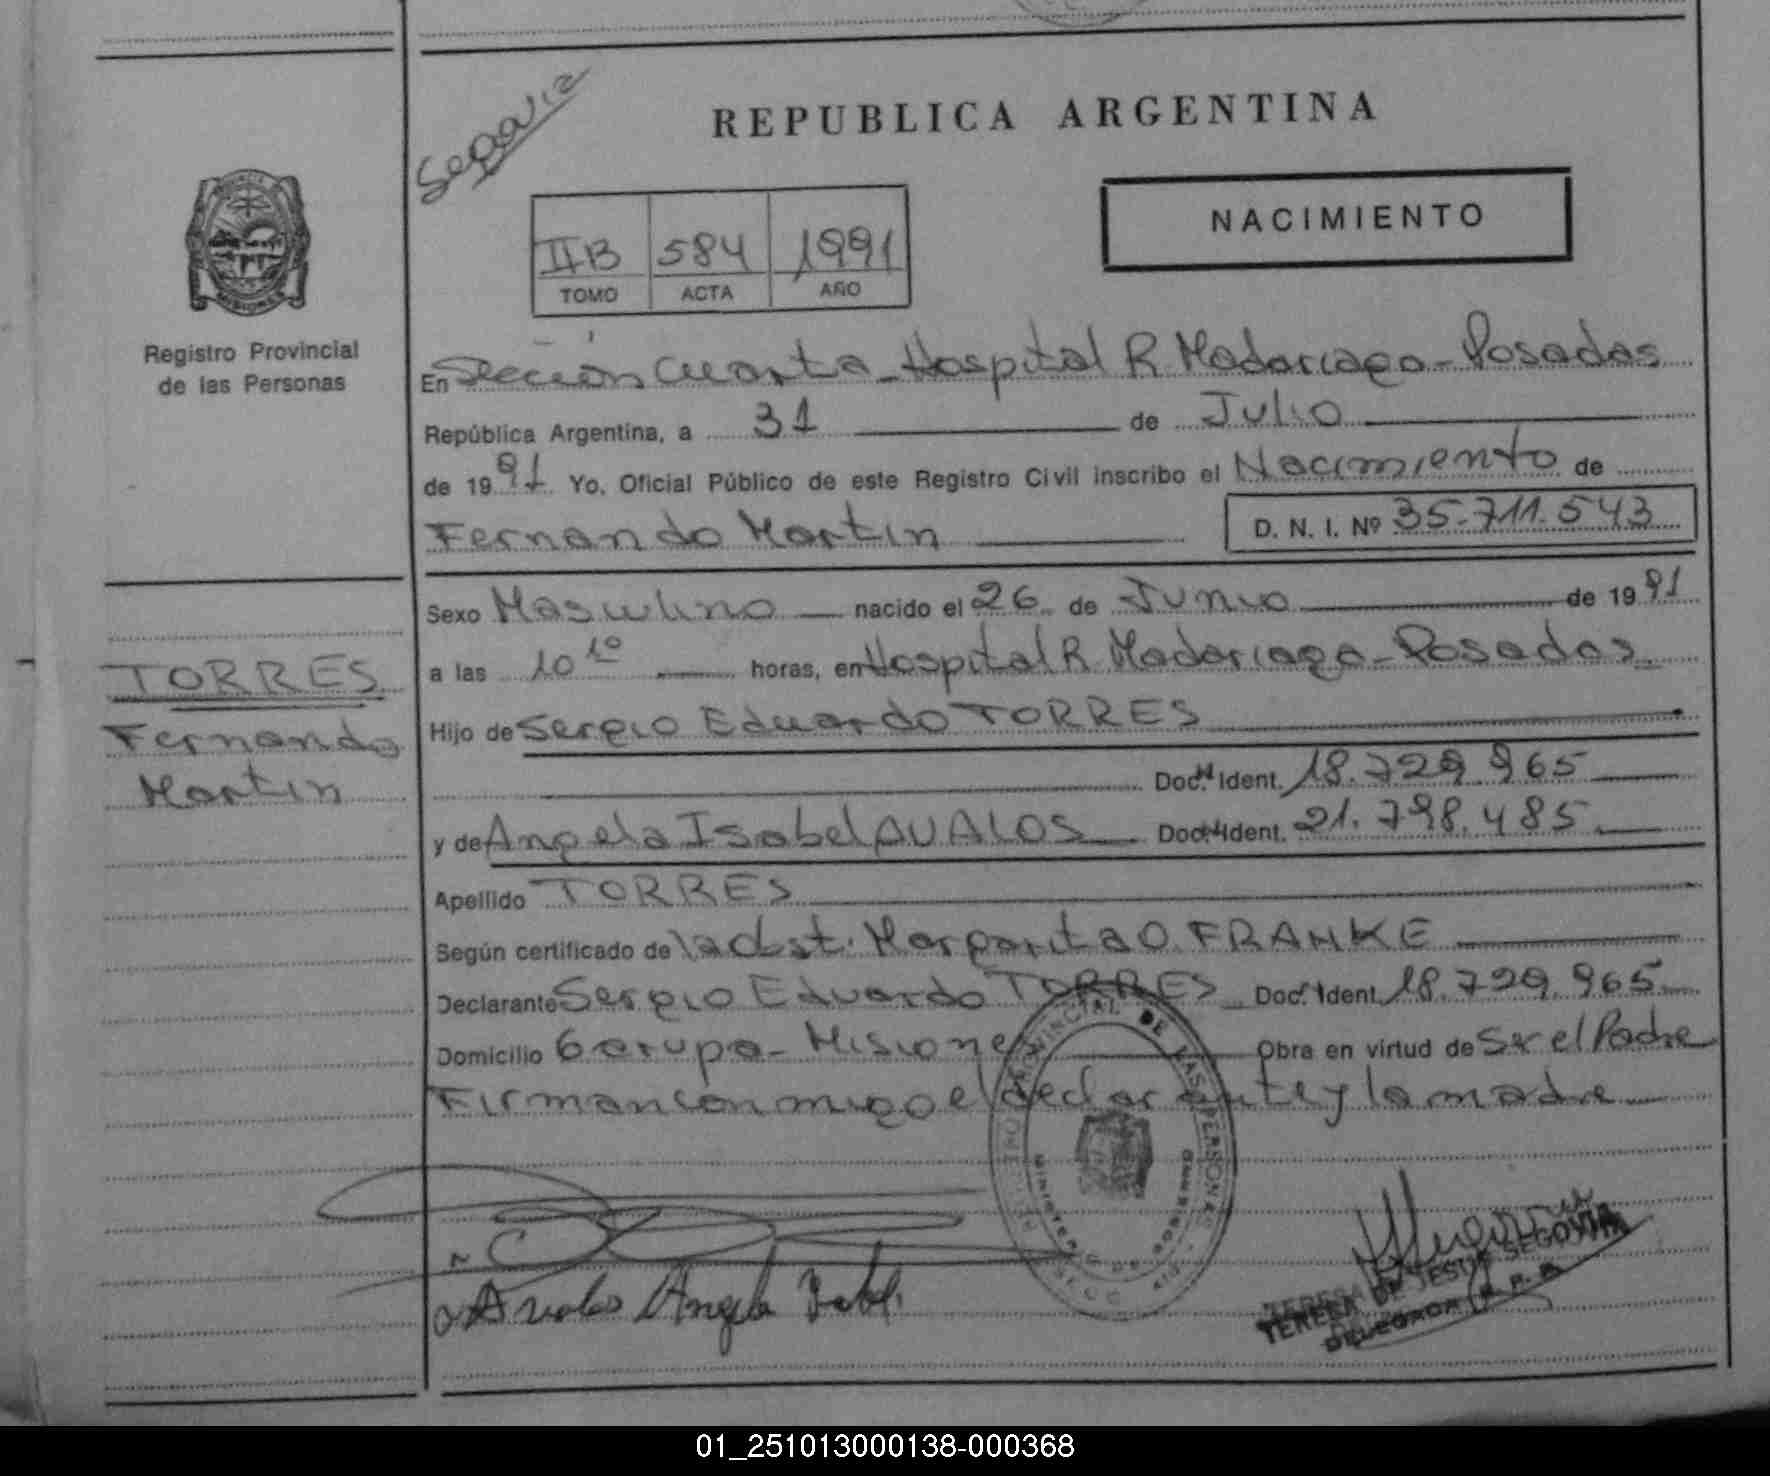 Segovia
REPUBLICA ARGENTINA
NACIMIENTO
IIB 584 1991
TOMO ACTA AÑO
MISIONES
Registro Provincial
de las Personas
En Sección Cuarta - Hospital R. Madariaga - Posadas
República Argentina, a 31 de Julio
de 1991 Yo, Oficial Público de este Registro Civil inscribo el Nacimiento de
Fernando Martin D. N. I. Nº 35.711.543
Sexo Masculino nacido el 26 de Junio de 1991
a las 10 10 horas, en Hospital R. Madariaga - Posadas
TORRES
Fernando
Martin
Hijo de Sergio Eduardo TORRES
Doc. Ident. 18.729.965
y de Angela Isabel AVALOS Doc. Ident. 21.798.485
Apellido TORRES
Según certificado de la Obst. Margarita O. FRANKE
Declarante Sergio Eduardo TORRES Doc. Ident. 18.729.965
Domicilio Garupa - Misiones Obra en virtud de Ser el Padre
Firman conmigo el declarante y la madre
PROVINCIAL DE LAS PERSONAS
Avalos Angela Isabel
TERESA DE JESUS SEGOVIA
DELEGADA R. P. P.
01_251013000138-000368